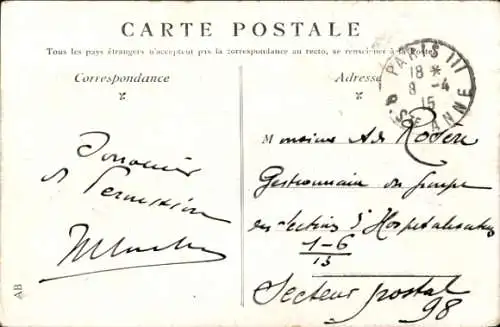 CARTE POSTALE
Tous les pays étrangers n'acceptent pas la correspondance au recto, se renseigner à la Poste
Correspondance
Adresse
PARIS III
18 *
8 -4
15
R. Ste ANNE
Souvenir
de
Monsieur A. de
Gestionnaire du groupe
des Sections d'Hospitalisation
1-6
15
Secteur postal
98
AB